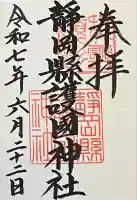 奉拝
靜岡縣護國神社
令和七年六月二十二日